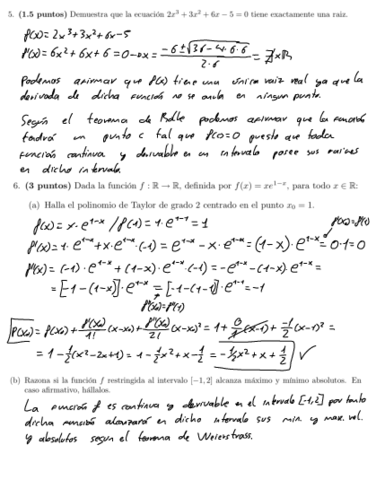 5. (1.5 puntos) Demuestra que la ecuación 2x³ + 3x² + 6x − 5 = 0 tiene exactamente una raíz.
f(x) = 2x³+3x²+6x-5
f'(x) = 6x²+6x+6 = 0 → x = (-6±√(36-4·6·6))/(2·6) = ∄x∈ℝ
Podemos afirmar que f(x) tiene una única raiz real ya que la
derivada de dicha función no se anula en ningun punto.
Según el teorema de Rolle podemos afirmar que la función
tendrá un punto c tal que f'(c)=0 puesto que toda
función continua y derivable en un intervalo posee sus raices
en dicho intervalo.
6. (3 puntos) Dada la función f : ℝ → ℝ, definida por f(x) = xe¹⁻ˣ, para todo x ∈ ℝ:
(a) Halla el polinomio de Taylor de grado 2 centrado en el punto x₀ = 1.
f(x) = x·e¹⁻ˣ / f(1) = 1·e¹⁻¹ = 1
f'(x₀)=f'(1)
f'(x) = 1·e¹⁻ˣ + x·e¹⁻ˣ·(-1) = e¹⁻ˣ - x·e¹⁻ˣ = (1-x)·e¹⁻ˣ = 0·1 = 0
f''(x) = (-1)·e¹⁻ˣ + (1-x)·e¹⁻ˣ·(-1) = -e¹⁻ˣ - (1-x)·e¹⁻ˣ =
= [-1-(1-x)]·e¹⁻ˣ = [-1-(1-1)]·e¹⁻¹ = -1
f''(x₀)=f''(1)
P(x₀) = f(x₀) + f'(x₀)/1! (x-x₀) + f''(x₀)/2! (x-x₀)² = 1 + 0/1 (x-1) + -1/2 (x-1)² =
= 1 - 1/2(x²-2x+1) = 1 - 1/2x² + x - 1/2 = -1/2x² + x + 1/2 ✓
(b) Razona si la función f restringida al intervalo [−1, 2] alcanza máximo y mínimo absolutos. En
caso afirmativo, hállalos.
La función f es continua y derivable en el intervalo [-1,2] por tanto
dicha función alcanzará en dicho intervalo sus min. y max. rel.
y absolutos según el teorema de Weierstrass.